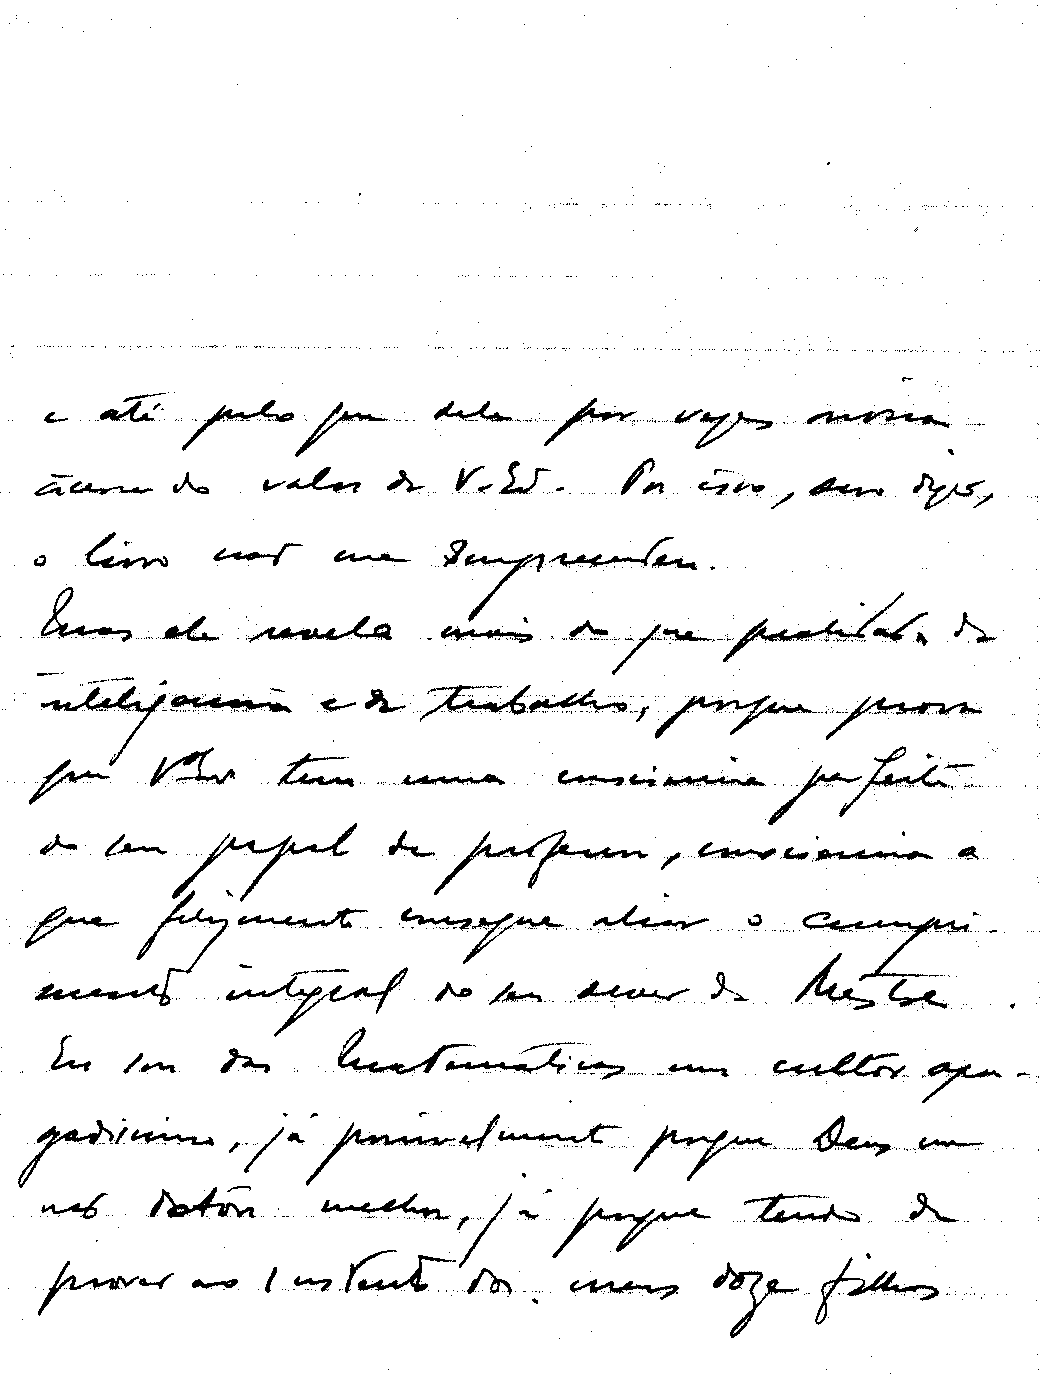 e até pelo que dele por vezes ouvia
àcerca do valor de V. Exª. Por isso, devo dizer,
o livro não me surpreendeu.
Mas ele revela mais do que qualidades de
inteligencia e de trabalho, porque prova
que V. Exª tem uma consciencia perfeita
do seu papel de professor, consciencia a
que felizmente consegue aliar o cumpri-
mento integral do seu dever de Mestre.
Eu sou das Matematicas um cultor apa-
gadissimo, já possivelmente porque Deus me
não dotou melhor, já porque tendo de
prover ao sustento dos meus doze filhos